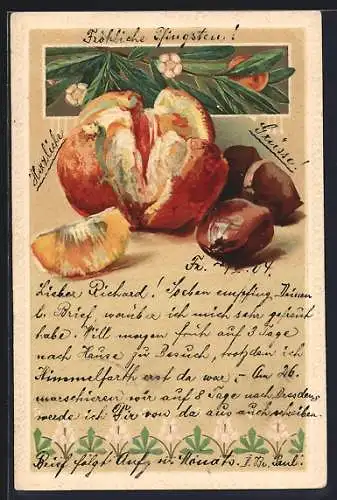 Fröhliche Pfingsten!
Herzliche
Grüsse!
Fr.
Lieber Richard! Soeben empfing Deinen
l. Brief, worüber ich mich sehr gefreut
habe. Will morgen früh auf 3 Tage
nach Hause zu Besuch, trotzdem ich
Himmelfarth erst da war. - Am 26.
marschieren wir auf 8 Tage nach Dresden,
werde ich Dir von da aus auch schreiben.
Brief folgt Anfg. n. Monats. Paul.